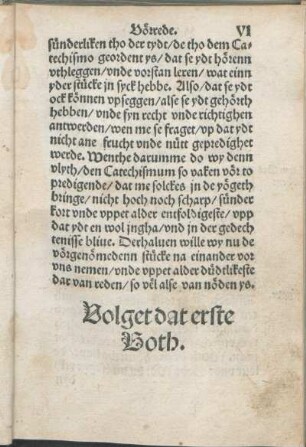 Vörrede. VI
sünderliken tho der tydt/ de tho dem Ca-
techismo geordent ys/ dat se ydt hörenn
vthleggen/ vnde vorstan leren/ wat einn
yder stücke jn syck hebbe. Also/ dat se ydt
ock können vpseggen/ alse se ydt gehörth
hebben/ vnde fyn recht vnde richtighen
antwerden/ wen me se fraget/ vp dat ydt
nicht ane frucht vnde nütt geprediget
werde. Wenthe darumme do wy denn
vlyth/ den Catechismum so vaken vör to
predigende/ dat me solckes jn de yögeth
bringe/ nicht hoch noch scharp/ sünder
kort vnde vppet alder entfoldigeste/ vpp
dat ydt en wol jngha/ vnd jn der gedech
tenisse bliue. Derhaluen wille wy nu de
vörgenömedenn stücke na einander vor
vns nemen/ vnde vppet alder düdtlikeste
dar van reden/ so vel alse van nöden ys.
Volget dat erste
Both.